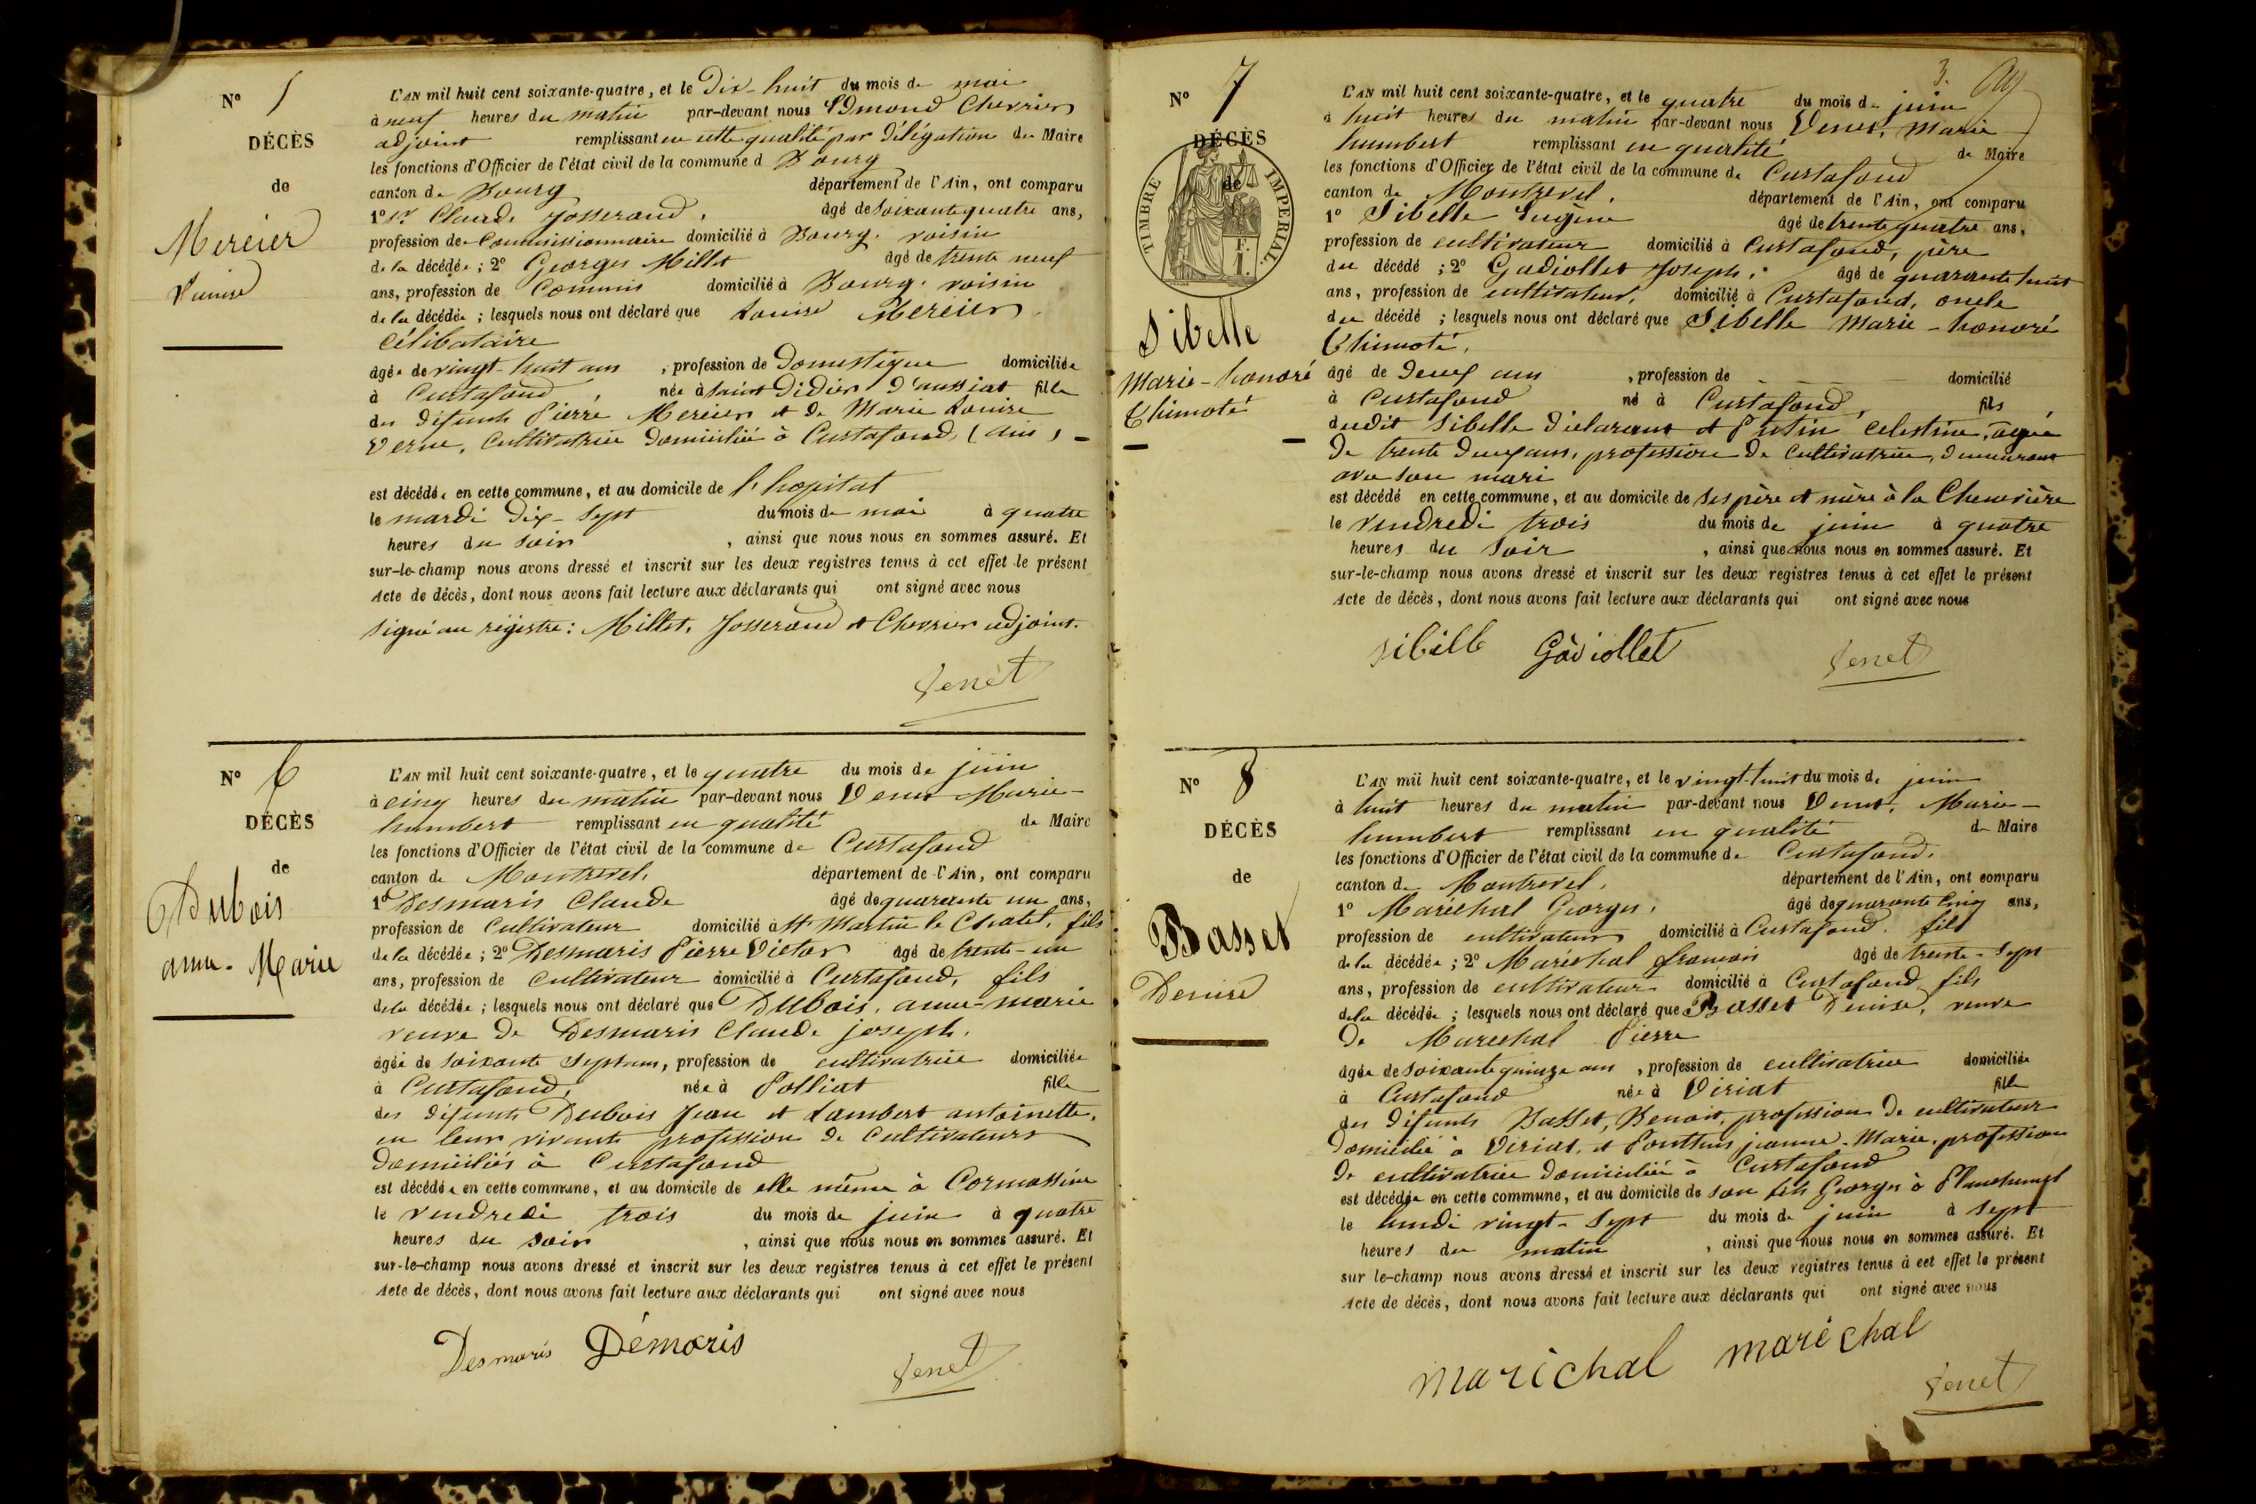 N° 5
DÉCÈS
de
Mercier
Louise
L'AN mil huit cent soixante-quatre, et le Dix-huit du mois de mai
à neuf heures du matin par-devant nous Edmond Chevrier
adjoint remplissant en cette qualité par délégation du Maire
les fonctions d'Officier de l'état civil de la commune d Bourg
canton de Bourg département de l'Ain, ont comparu
1° Claude Josserand, âgé de soixante quatre ans,
profession de Commissionnaire domicilié à Bourg. voisin
de la décédée ; 2° Georges Millet âgé de trente neuf
ans, profession de Commis domicilié à Bourg. voisin
de la décédée ; lesquels nous ont déclaré que Louise Mercier,
célibataire
âgée de vingt-huit ans, profession de Domestique domiciliée
à Curtafond, née à saint Didier d'aussiat fille
des défunts Pierre Mercier et de Marie Louise
Verne, Cultivatrice domiciliée à Curtafond, (ain) -
est décédée en cette commune, et au domicile de l'hopital
le mardi dix-sept du mois de mai à quatre
heures du soir, ainsi que nous nous en sommes assuré. Et
sur-le-champ nous avons dressé et inscrit sur les deux registres tenus à cet effet le présent
Acte de décès, dont nous avons fait lecture aux déclarants qui ont signé avec nous
signé au registre : Millet, Josserand et Chevrier adjoint.
Venet
N° 6
DÉCÈS
de
Dubois
anne-Marie
L'AN mil huit cent soixante-quatre, et le quatre du mois de juin
à cinq heures du matin par-devant nous Venet Marie-
humbert remplissant en qualité de Maire
les fonctions d'Officier de l'état civil de la commune de Curtafond
canton de Montrevel. département de l'Ain, ont comparu
1° Desmaris Claude âgé de quarante un ans,
profession de Cultivateur domicilié à St Martin le Chatel, fils
de la décédée ; 2° Desmaris Pierre Victor âgé de trente-un
ans, profession de cultivateur domicilié à Curtafond, fils
de la décédée ; lesquels nous ont déclaré que Dubois, anne-marie
veuve de Desmaris Claude joseph.
âgée de soixante sept ans, profession de cultivatrice domiciliée
à Curtafond, née à Polliat fille
des défunts Dubois Jean et Lambert antoinette,
en leur vivant profession de Cultivateurs
domiciliés à Curtafond
est décédée en cette commune, et au domicile de elle même à Cormassine
le vendredi trois du mois de juin à quatre
heures du soir, ainsi que nous nous en sommes assuré. Et
sur-le-champ nous avons dressé et inscrit sur les deux registres tenus à cet effet le présent
Acte de décès, dont nous avons fait lecture aux déclarants qui ont signé avec nous
Desmaris Démaris
Venet
3.
N° 7
DÉCÈS
de
TIMBRE IMPERIAL.
Sibelle
Marie-honoré
Thimoté
L'AN mil huit cent soixante-quatre, et le quatre du mois de juin
à huit heures du matin par-devant nous Venet, Marie
humbert remplissant en qualité de Maire
les fonctions d'Officier de l'état civil de la commune de Curtafond
canton de Montrevel. département de l'Ain, ont comparu
1° Sibelle Eugène âgé de trente quatre ans,
profession de cultivateur domicilié à Curtafond, père
du décédé ; 2° Gadiollet Joseph. âgé de quarante huit
ans, profession de cultivateur, domicilié à Curtafond, oncle
du décédé ; lesquels nous ont déclaré que Sibelle Marie-honoré
Thimoté,
âgé de deux ans, profession de domicilié
à Curtafond né à Curtafond, fils
dudit Sibelle déclarant et Putin Celestine, agée
de trente deux ans, profession de Cultivatrice, demeurant
avec son mari
est décédé en cette commune, et au domicile de ses père et mère à la Chevrière
le vendredi trois du mois de juin à quatre
heures du soir, ainsi que nous nous en sommes assuré. Et
sur-le-champ nous avons dressé et inscrit sur les deux registres tenus à cet effet le présent
Acte de décès, dont nous avons fait lecture aux déclarants qui ont signé avec nous
Sibille Gadiollet Venet
N° 8
DÉCÈS
de
Basset
Denise
L'AN mil huit cent soixante-quatre, et le vingt-huit du mois de juin
à huit heures du matin par-devant nous Venet, Marie-
humbert remplissant en qualité de Maire
les fonctions d'Officier de l'état civil de la commune de Curtafond.
canton de Montrevel. département de l'Ain, ont comparu
1° Maréchal Georges, âgé de quarante cinq ans,
profession de cultivateur domicilié à Curtafond. fils
de la décédée ; 2° Marechal françois âgé de trente-sept
ans, profession de cultivateur domicilié à Curtafond fils
de la décédée ; lesquels nous ont déclaré que Basset Denise, veuve
de Marechal Pierre
âgée de soixante quinze ans, profession de cultivatrice domiciliée
à Curtafond née à Viriat fille
des défunts Basset, Benoit, profession de cultivateur
domicilié à Viriat, et Pouthus jeanne-Marie, profession
de cultivatrice domiciliée à Curtafond
est décédée en cette commune, et au domicile de son fils Georges à Planchamp
le lundi vingt-sept du mois de juin à sept
heures du matin, ainsi que nous nous en sommes assuré. Et
sur le-champ nous avons dressé et inscrit sur les deux registres tenus à cet effet le présent
Acte de décès, dont nous avons fait lecture aux déclarants qui ont signé avec nous
marichal maréchal
Venet